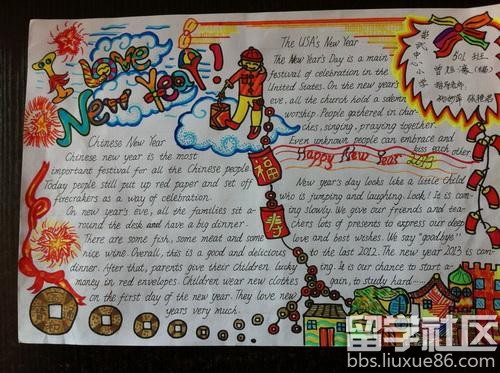 I Love
New Year!
The USA's New Year
The New Year's Day is a main
festival of celebration in the
United States. On the new year's
eve, all the church hold a solemn
worship. People gathered in chur-
ches, singing, praying together.
Even unknown people can embrace and
kiss each other.
501 班
Happy New Year 2013
Chinese New Year
Chinese new year is the most
important festival for all the Chinese people.
Today people still put up red paper and set off
firecrakers as a way of celebration.
On new year's eve, all the families sit a-
round the desk and have a big dinner.
There are some fish, some meat and some
nice wine. Overall, this is a good and delicious
dinner. After that, parents give their children lucky
money in red envelopes. Children wear new clothes
on the first day of the new year. They love new
years very much.
福
寿
New year's day looks like a little child
who is jumping and laughing. Look! It is com-
ing slowly. We give our friends and tea-
chers lots of presents to express our deep
love and best wishes. We say "goodbye"
to the last 2012. The new year 2013 is com-
ing. It is our chance to start a-
gain, to study hard......
留学社区
bbs.liuxue86.com